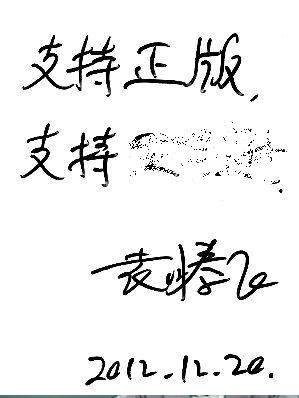 支持正版,
支持
袁腾飞
2012.12.20.